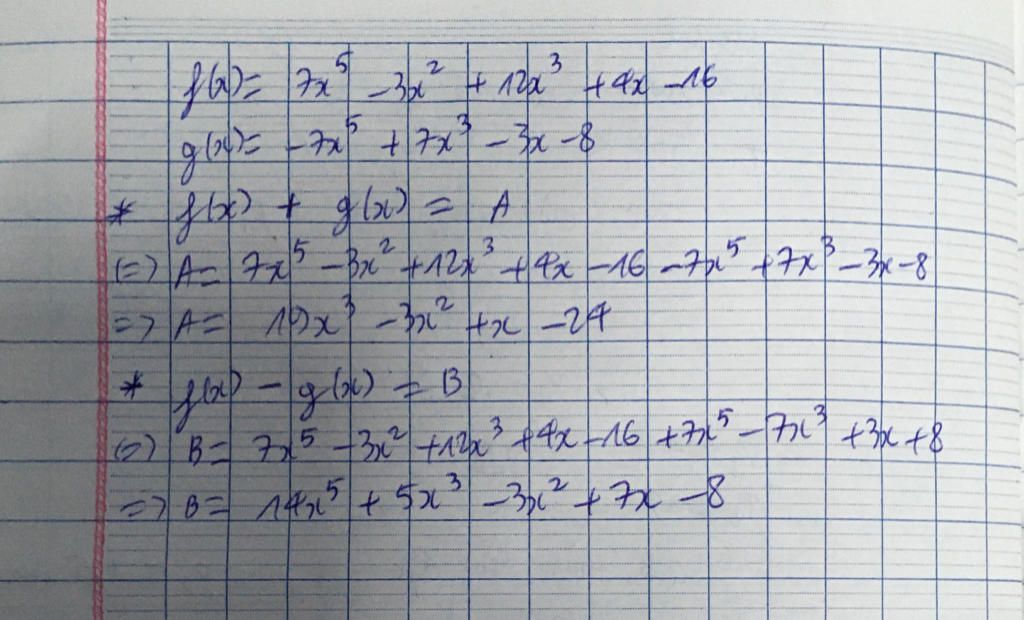 f(x)= 7x⁵ -3x² +12x³ +4x -16
g(x)= -7x⁵ +7x³ -3x -8
* f(x) + g(x) = A
(=) A= 7x⁵ -3x² +12x³ +4x -16 -7x⁵ +7x³ -3x -8
=> A= 19x³ -3x² +x -24
* f(x) - g(x) = B
(=) B= 7x⁵ -3x² +12x³ +4x -16 +7x⁵ -7x³ +3x +8
=> B= 14x⁵ +5x³ -3x² +7x -8